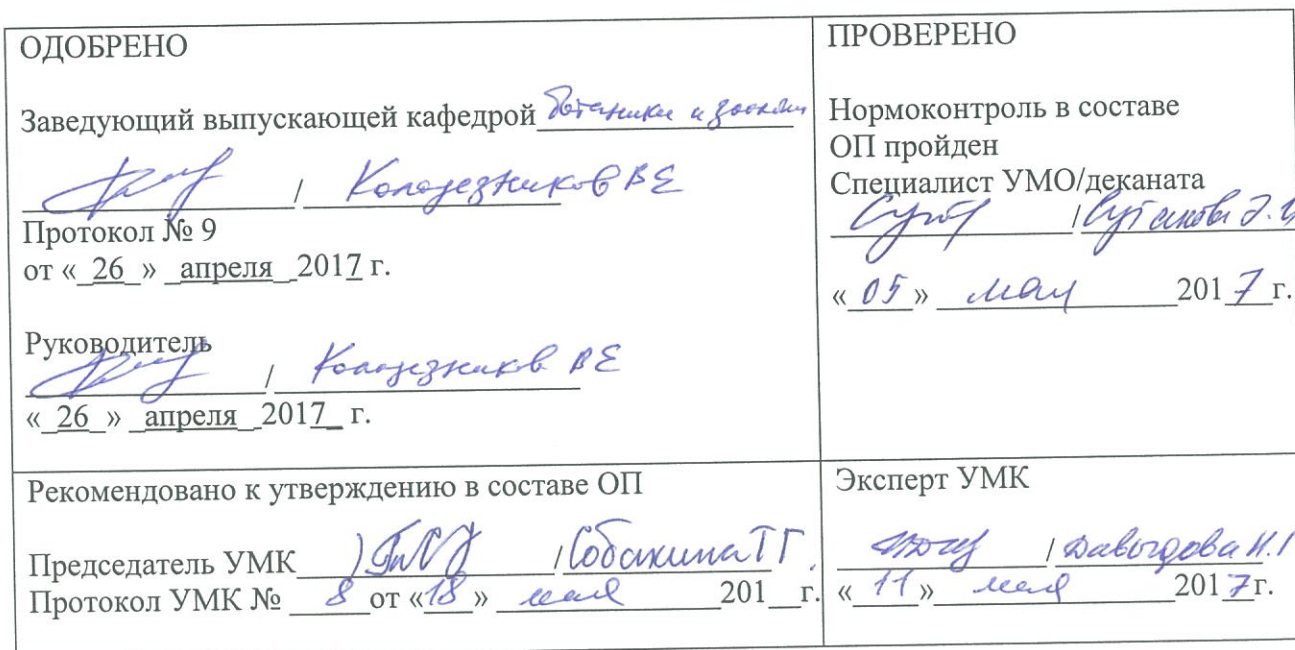 ОДОБРЕНО
Заведующий выпускающей кафедрой ботаники и зоологии
/ Колодезников ВЕ
Протокол № 9
от «_26_» _апреля_ 2017 г.
Руководитель
/ Колодезников ВЕ
«_26_» _апреля_ 2017_ г.
ПРОВЕРЕНО
Нормоконтроль в составе
ОП пройден
Специалист УМО/деканата
/
«05» мая 2017 г.
Рекомендовано к утверждению в составе ОП
Председатель УМК / Собакина ТГ.
Протокол УМК № 8 от «18» мая 201__г.
Эксперт УМК
/ Давыдова Н.
«11» мая 2017г.